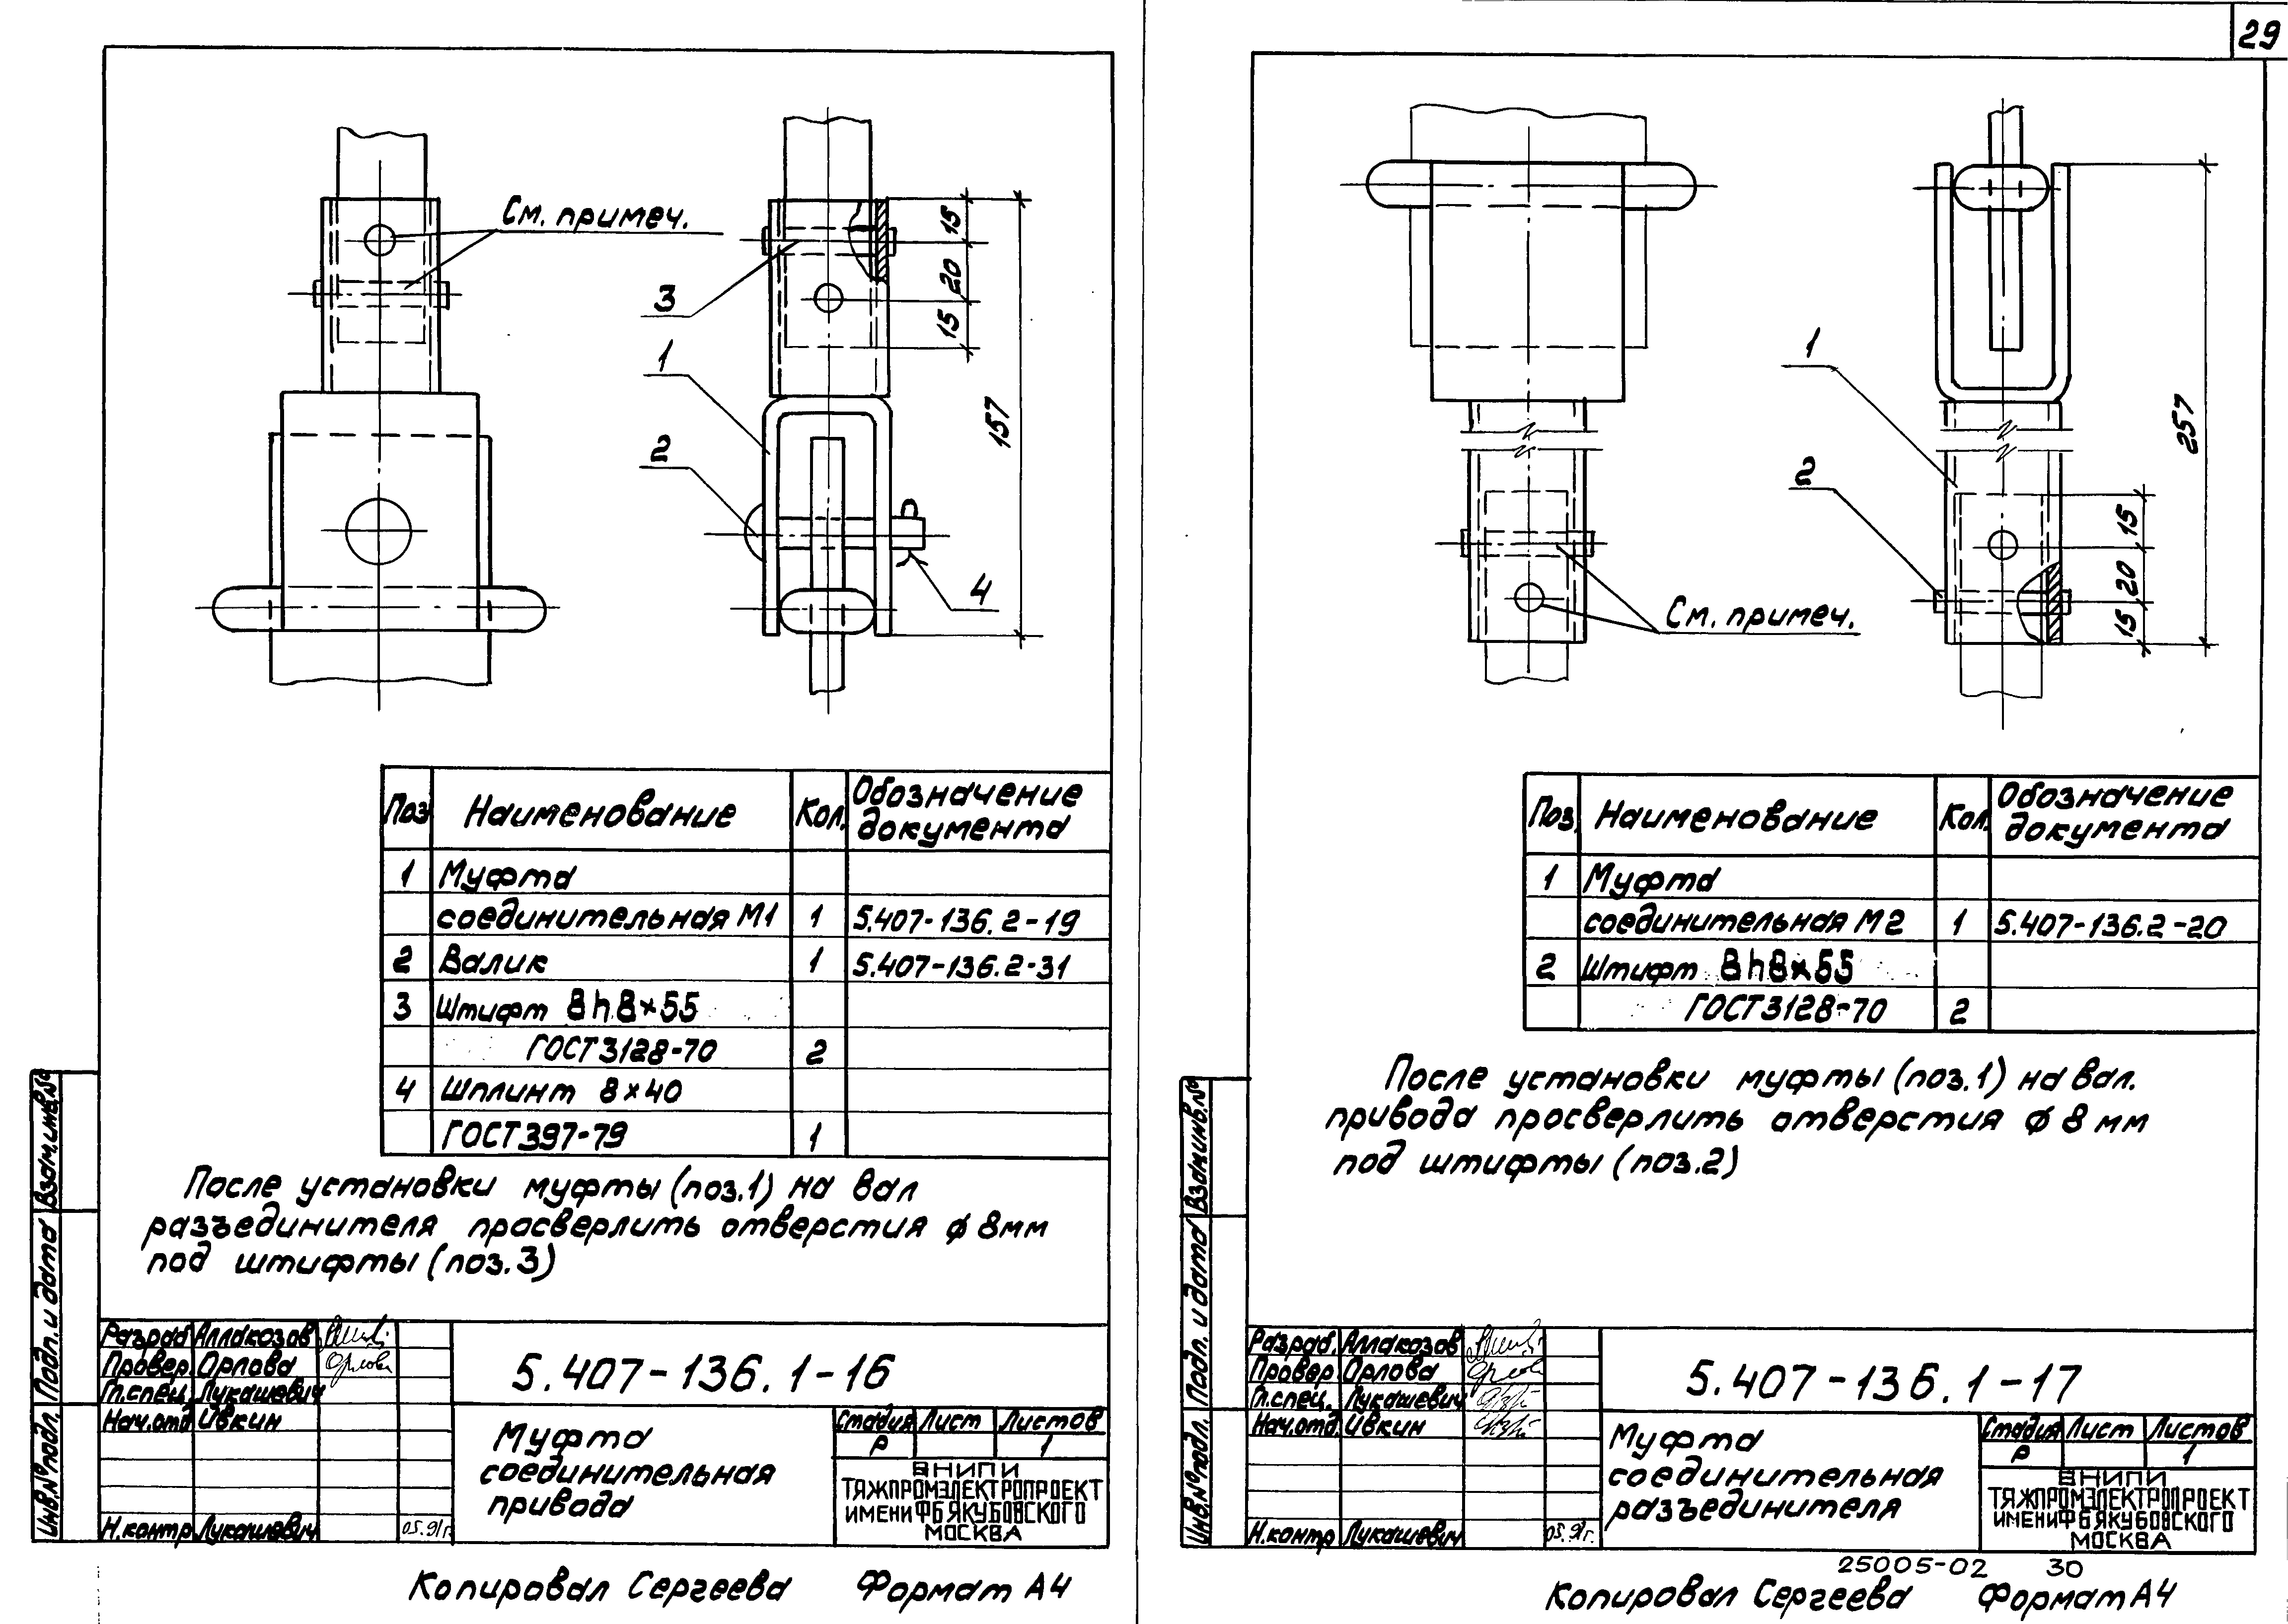 См. примеч.
3
1
2
4
15
20
15
157
Поз Наименование Кол. Обозначение документа
1 Муфта
соединительная М1 1 5.407-136.2-19
2 Валик 1 5.407-136.2-31
3 Штифт 8h8×55
ГОСТ 3128-70 2
4 Шплинт 8×40
ГОСТ 397-79 1
После установки муфты (поз.1) на вал
разъединителя просверлить отверстия ϕ 8мм
под штифты (поз.3)
Взам.инв.№
Подп. и дата
Инв.№ подл.
Разраб Аллакозов
Провер. Орлова
Гл.спец. Лукашевич
Нач.отд Ивкин
Н.контр Лукашевич 05.91г.
5.407-136.1-16
Муфта
соединительная
привода
Стадия Лист Листов
Р 1
ВНИПИ
ТЯЖПРОМЭЛЕКТРОПРОЕКТ
ИМЕНИ Ф Б ЯКУБОВСКОГО
МОСКВА
Копировал Сергеева Формат А4
29
1
2
См. примеч.
257
15
20
15
Поз. Наименование Кол. Обозначение документа
1 Муфта
соединительная М2 1 5.407-136.2-20
2 Штифт 8h8×55
ГОСТ 3128-70 2
После установки муфты (поз.1) на вал.
привода просверлить отверстия ϕ 8 мм
под штифты (поз.2)
Взам.инв.№
Подп. и дата
Инв.№ подл.
Разраб. Аллакозов
Провер Орлова
Гл.спец. Лукашевич
Нач.отд. Ивкин
Н.контр Лукашевич 05.91г.
5.407-136.1-17
Муфта
соединительная
разъединителя
Стадия Лист Листов
Р 1
ВНИПИ
ТЯЖПРОМЭЛЕКТРОПРОЕКТ
ИМЕНИ Ф Б ЯКУБОВСКОГО
МОСКВА
25005-02 30
Копировал Сергеева Формат А4